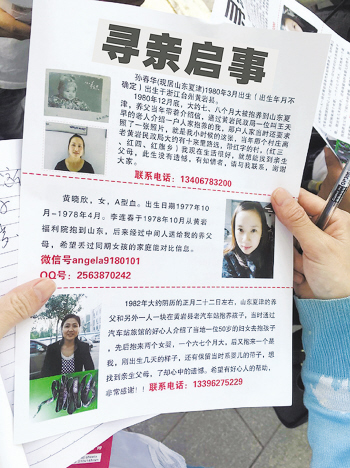 寻亲启事
孙春华(现居山东夏津)1980年3月出生（出生年月不
确定）出生于浙江台州黄岩县。
1980年12月底，大约七、八个月大被抱养到山东夏
津，养父当年带着介绍信，通过黄岩民政局一位叫王天
早的老人介绍一户人家抱养的我。那户人家当时还要求
照了一张照片，就是我小时候的这张，当年那个村庄离
老黄岩民政局大约有十来里路远，带红字的村，(红三
、红四、红旗乡) 我现在生活很好，就想能找到亲生
父母，此生没有遗憾，有知情者，请与我联系，谢谢
大家。
联系电话: 13406783200
黄晓欣，女，A型血。出生日期1977年10
月-1978年4月。李连春于1978年10月从黄岩
福利院抱到山东，后来经过中间人送给我的养父
母，希望丢过同期女孩的家庭能对比信息。
微信号angela9180101
QQ号: 2563870242
1982年大约阴历的正月二十二日左右，山东夏津的养
父和另外一人一块在黄岩县老汽车站抱养孩子，当时通过
汽车站旅馆的好心人介绍了当地一位50岁的妇女去抱孩子
，先后抱来两个女婴，一个六七个月大，后又抱来一个是
我，刚出生几天的样子，还有保留当时系婴儿的带子，想
找到亲生父母，了却心中的遗憾。希望有好心人的帮助，
非常感谢！！联系电话: 13396275229